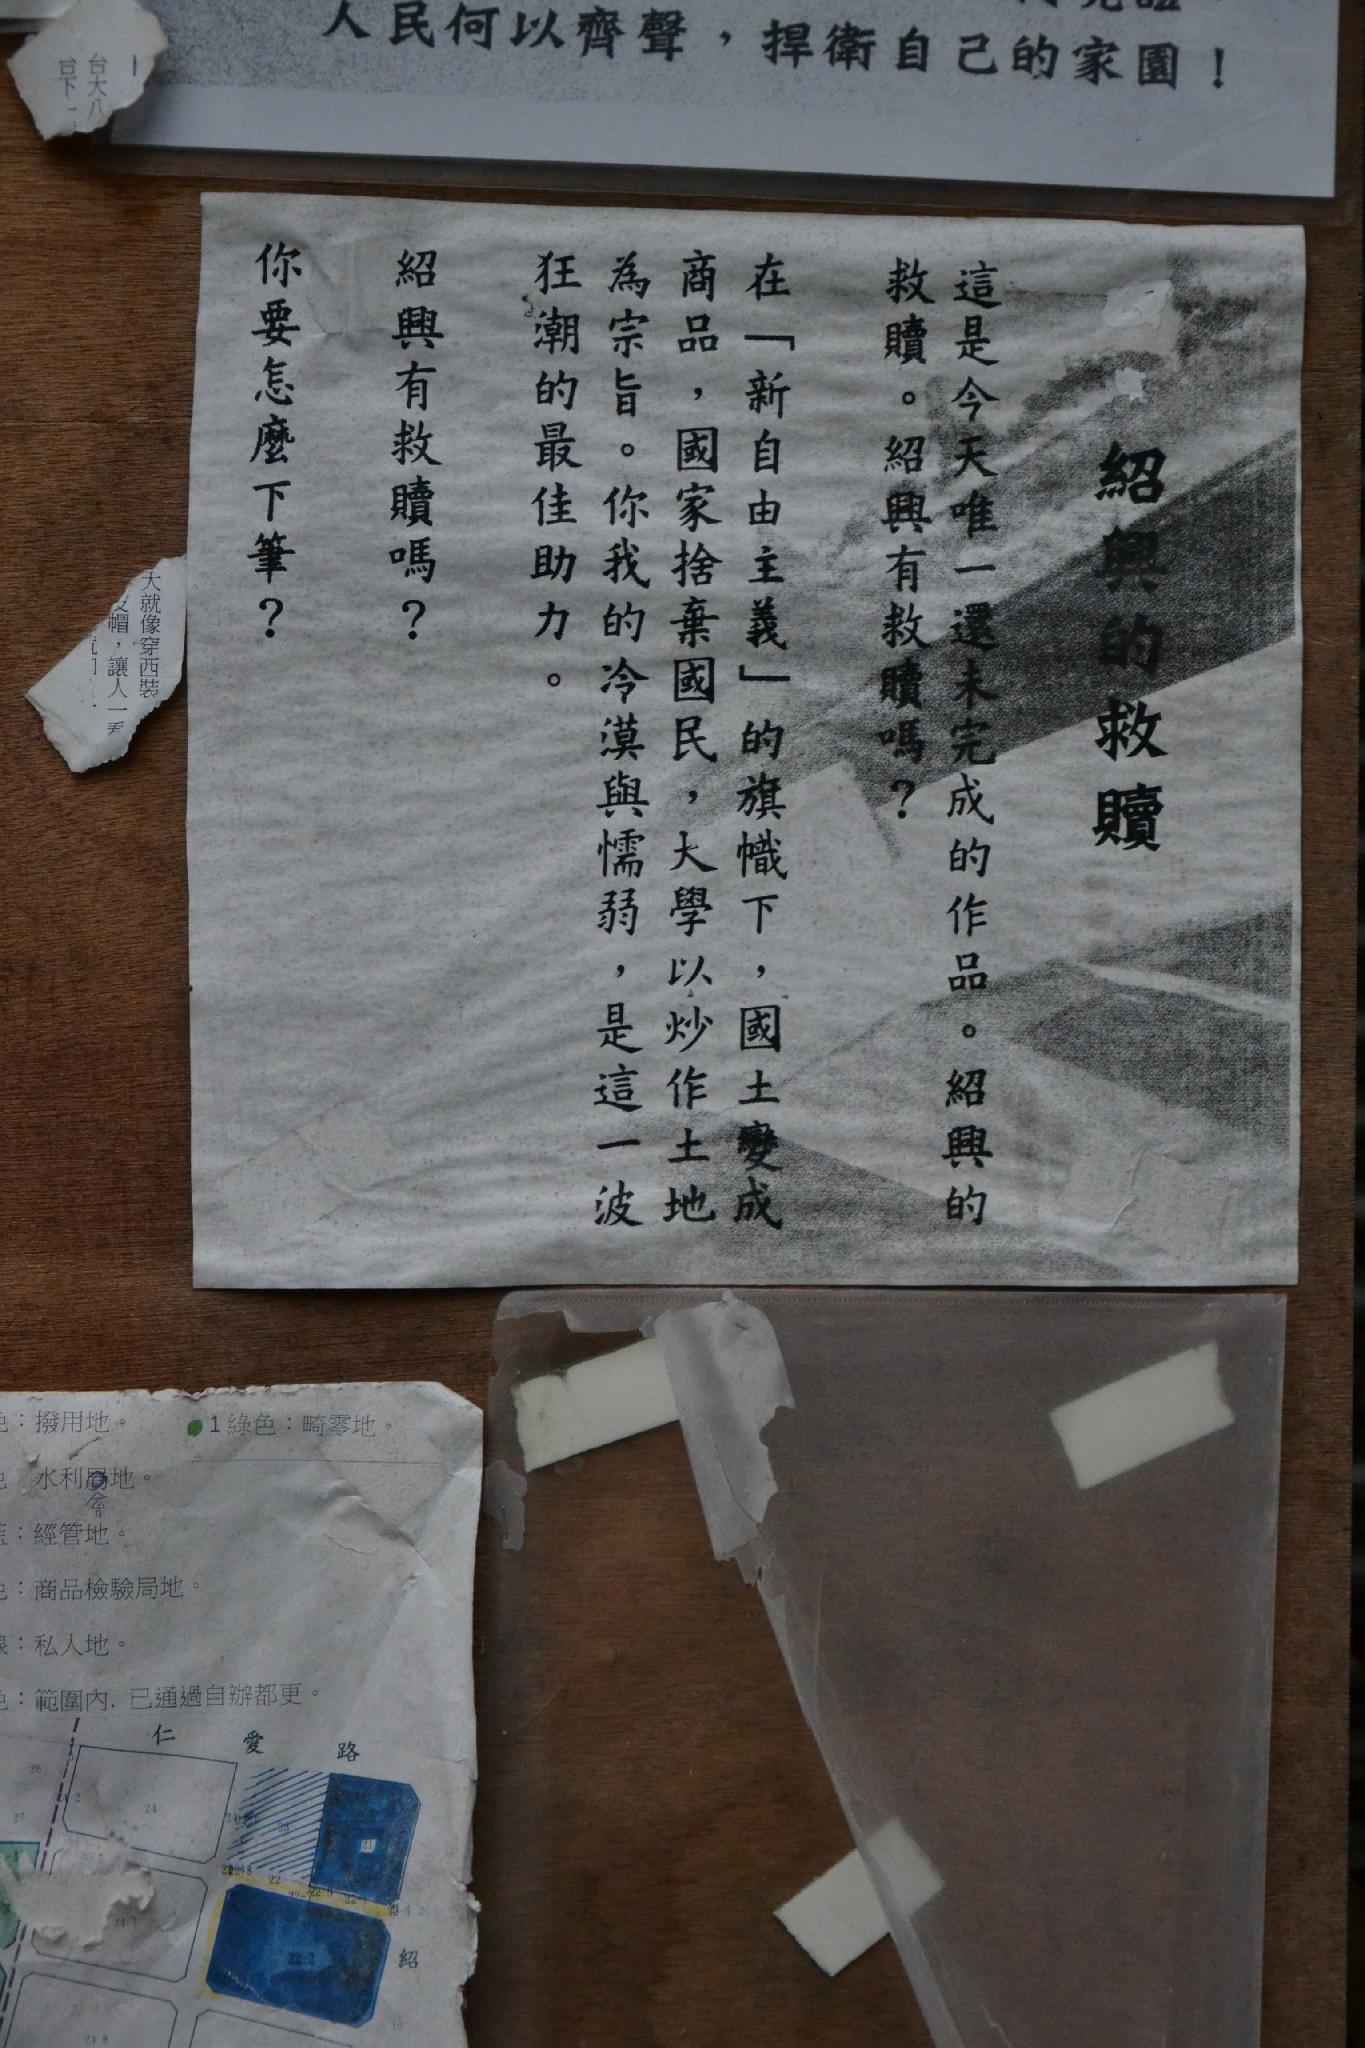 人民何以齊聲，捍衛自己的家園！
台大八
台下
紹興的救贖
這是今天唯一還未完成的作品。紹興的
救贖。紹興有救贖嗎？
在「新自由主義」的旗幟下，國土變成
商品，國家捨棄國民，大學以炒作土地
為宗旨。你我的冷漠與懦弱，是這一波
狂潮的最佳助力。
紹興有救贖嗎？
你要怎麼下筆？
大就像穿西裝
帽，讓人一
：撥用地。
1 綠色：畸零地。
水利會地。
：經管地。
：商品檢驗局地。
：私人地。
：範圍內，已通過自辦都更。
仁愛路
26
24
27
23
21
22
22-2
24-1
紹
24-8